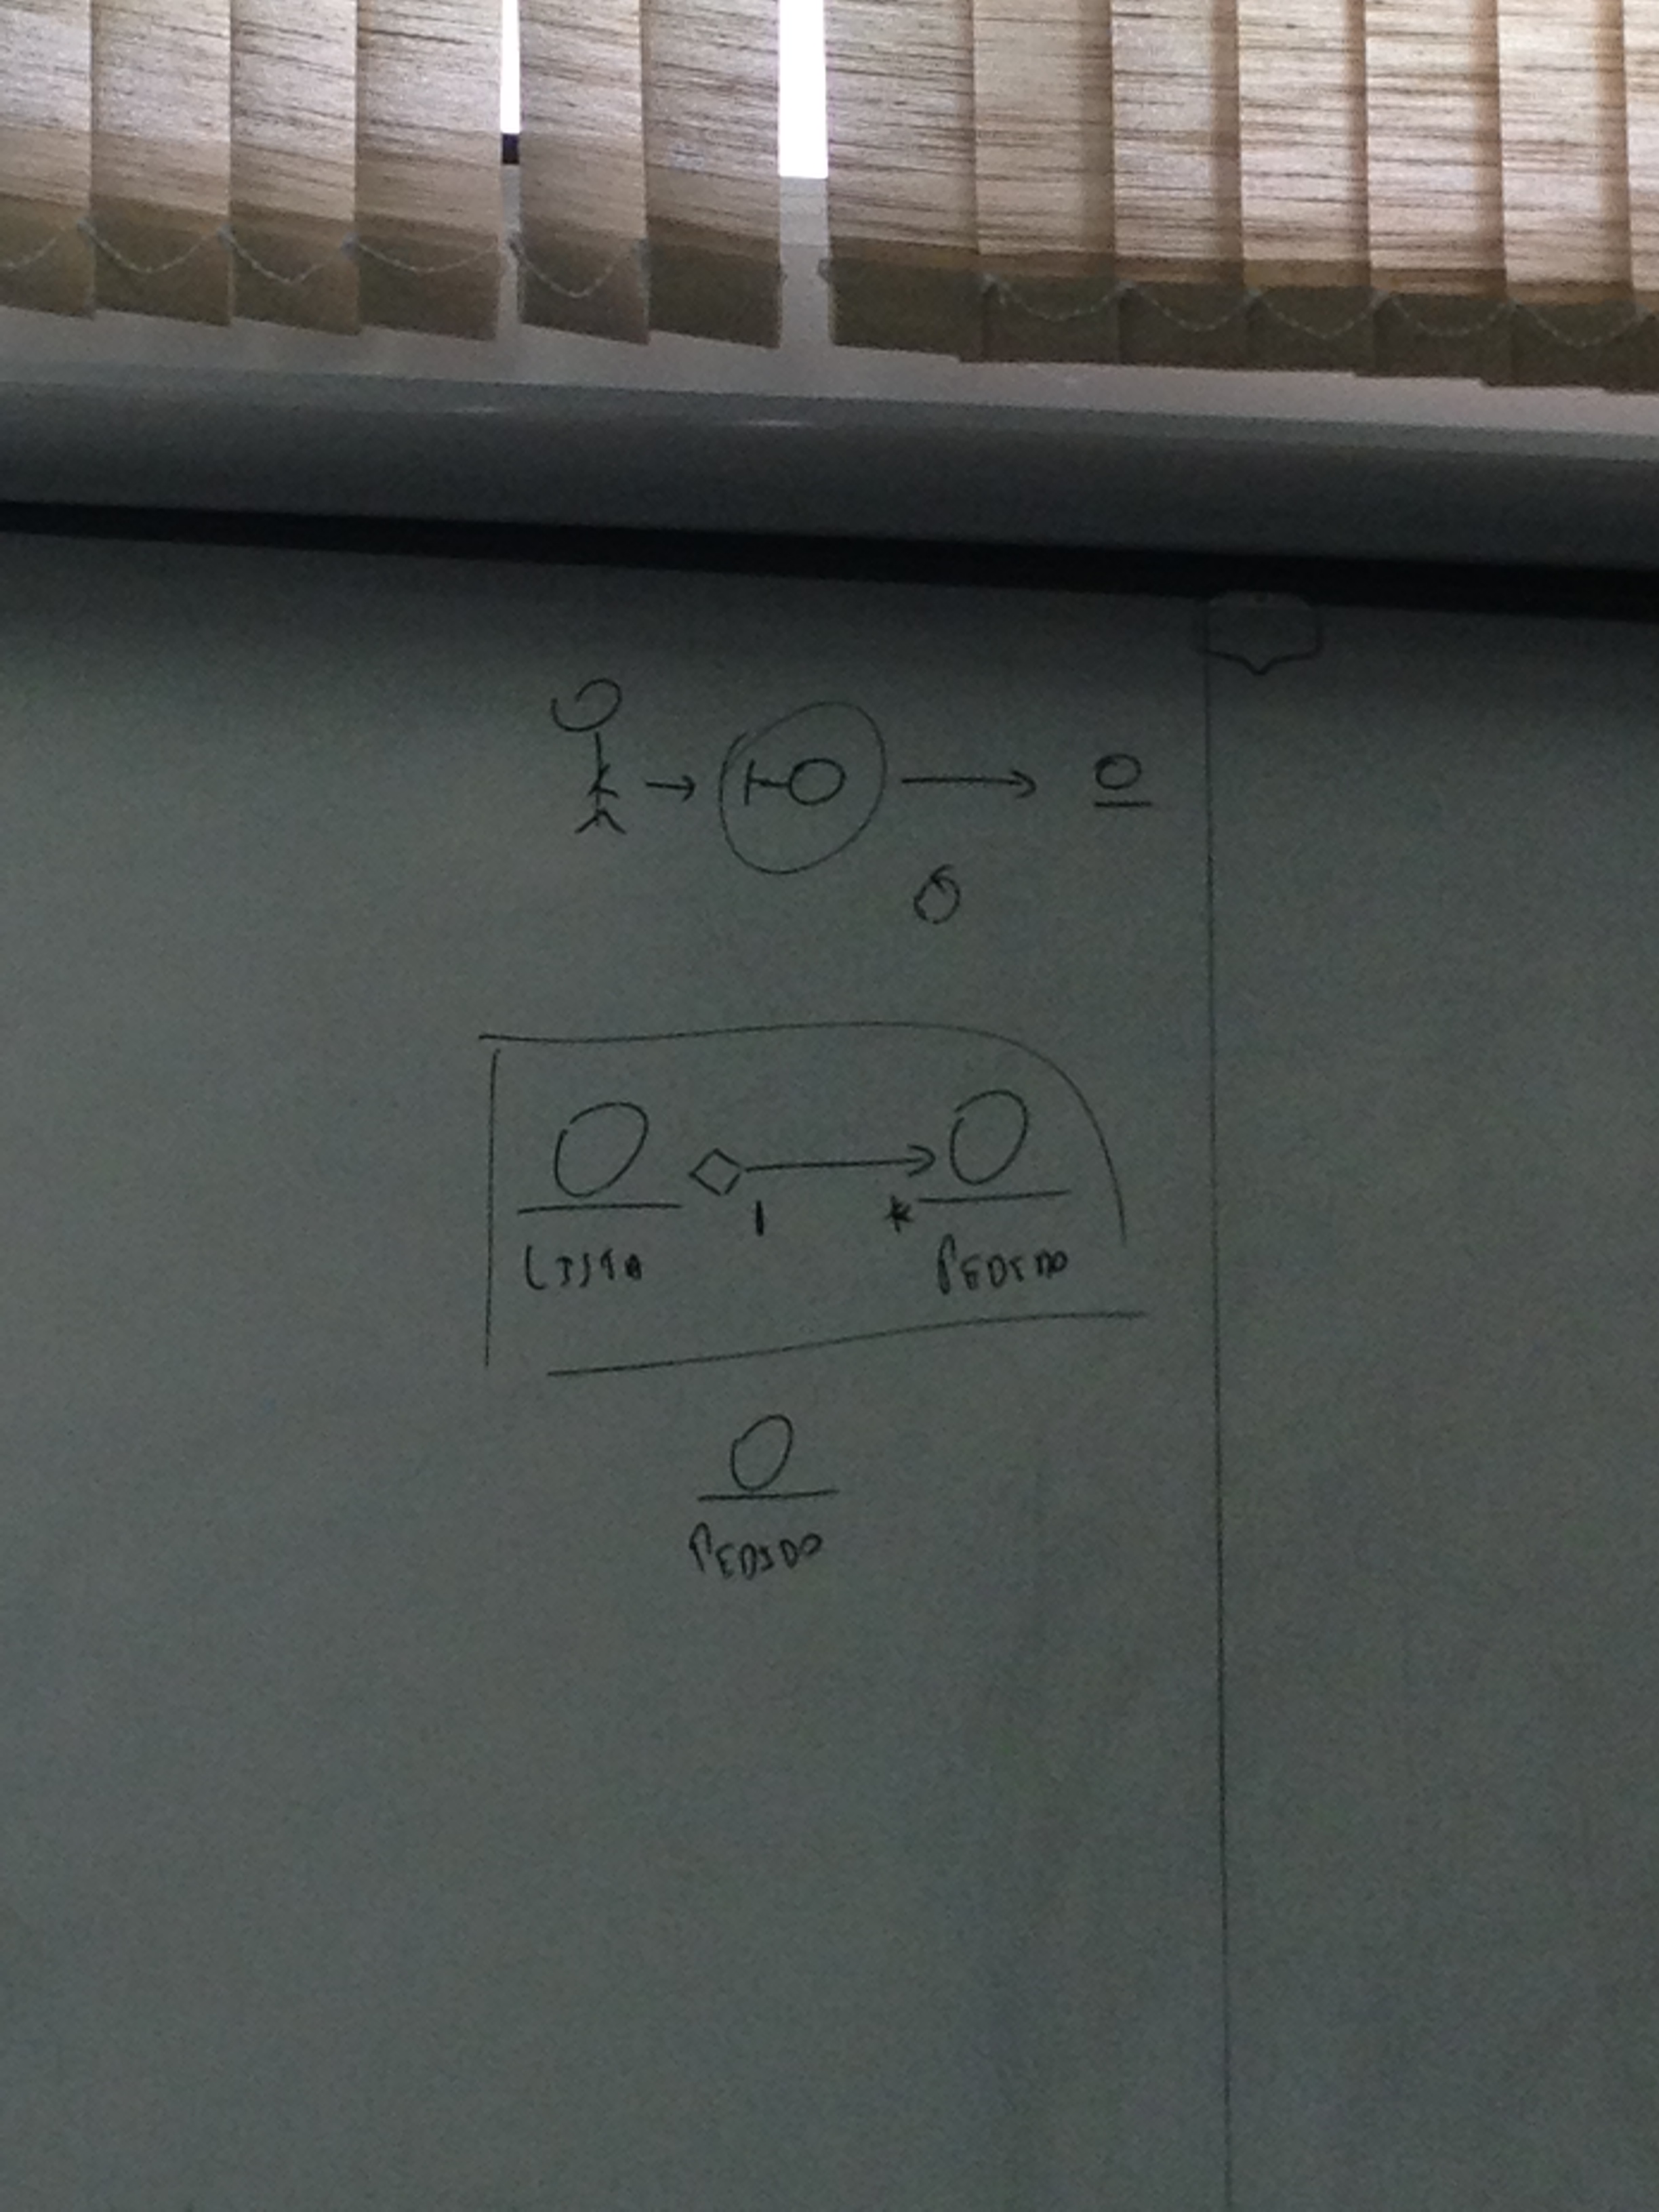 1 *
LISTA PEDIDO
PEDIDO